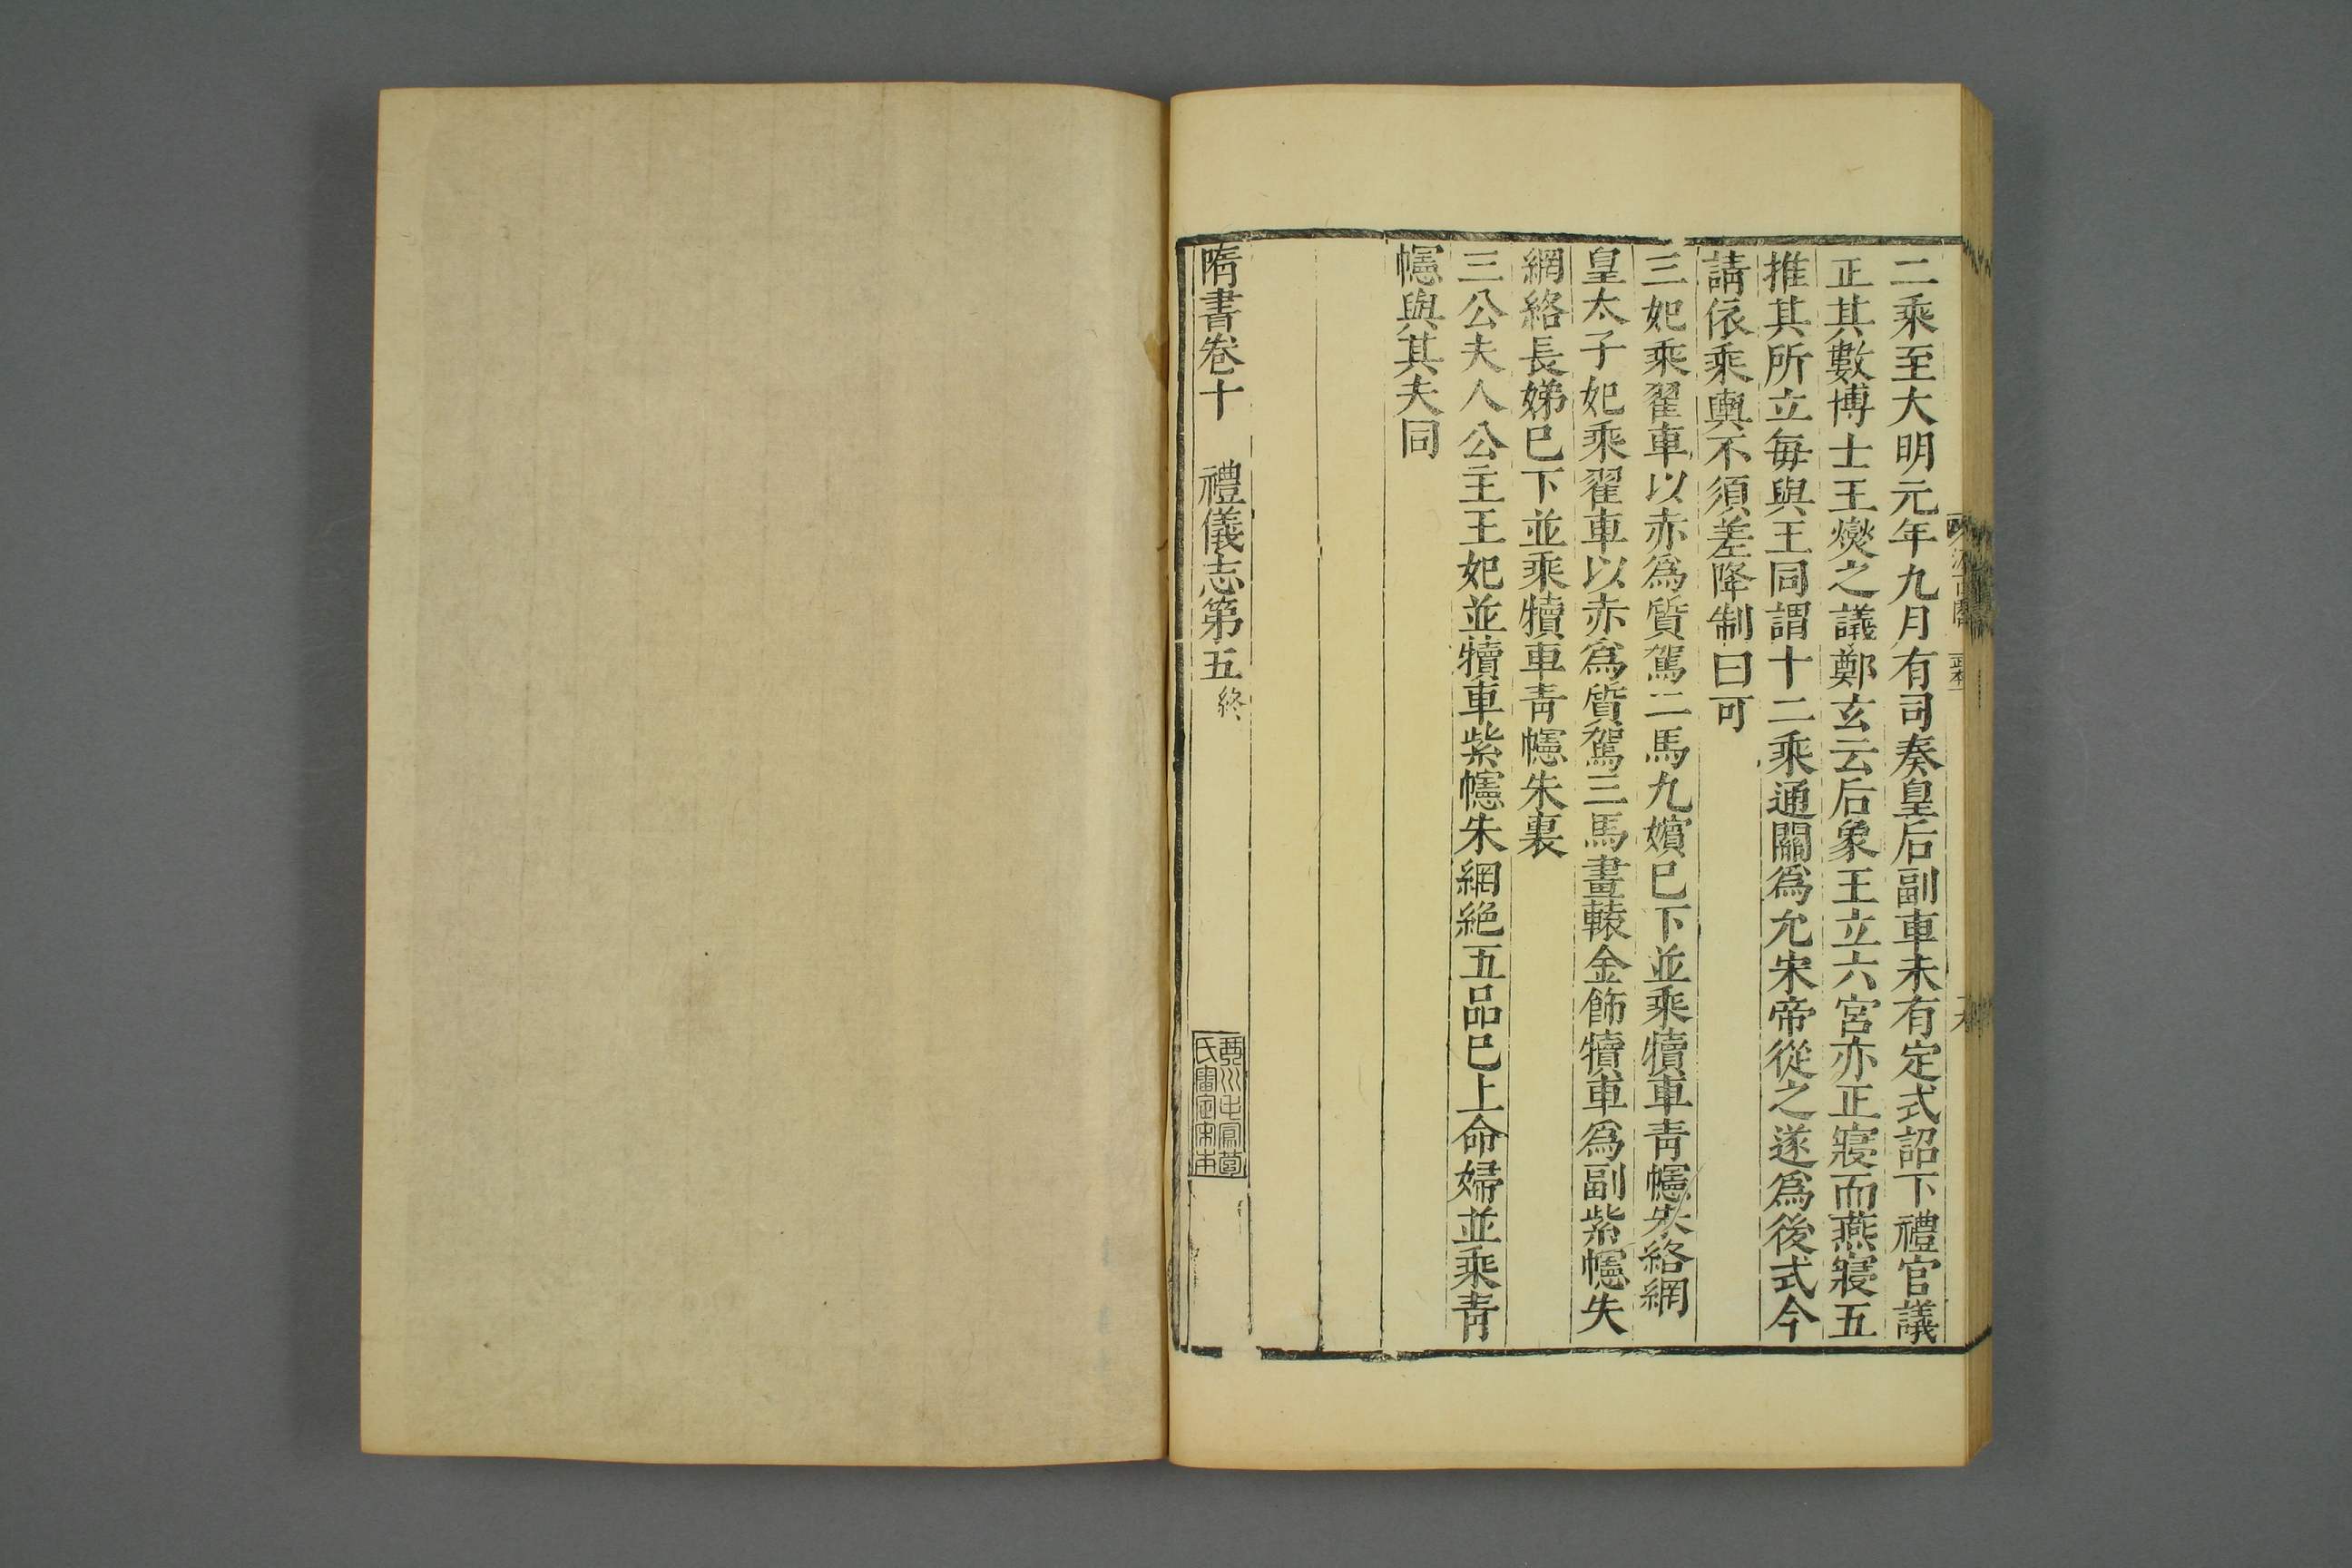 二乘至大明元年九月有司奏皇后副車未有定式詔下禮官議
正其數博士王燮之議鄭玄云后象王立六宮亦正寢而燕寢五
推其所立每與王同謂十二乘通關爲允宋帝從之遂爲後式今
請依乘輿不須差降制曰可
三妃乘翟車以赤爲質駕二馬九嬪已下並乘犢車青幰朱絡網
皇太子妃乘翟車以赤爲質駕三馬畫轅金飾犢車爲副紫幰朱
網絡長娣已下並乘犢車青幰朱裏
三公夫人公主王妃並犢車紫幰朱網絶五品已上命婦並乘青
幰與其夫同
隋書卷十 禮儀志第五終